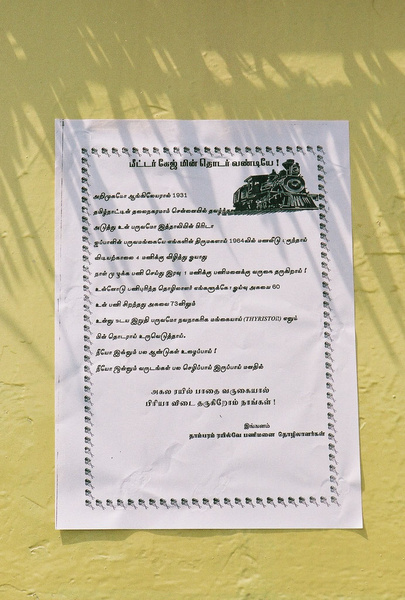 மீட்டர் கேஜ் மின் தொடர் வண்டியே !
அறிமுகமோ ஆங்கிலேயரால் 1931
தமிழ்நாட்டின் தலைநகரமாம் சென்னையில் தவழ்ந்தாய்
அடுத்து உன் பருவமோ இத்தாலியின் பிரிடா
ஜப்பானின் பருவமங்கையே எங்களின் திருமகளாய் 1964ல்
விடியற்காலை 4 மணிக்கு விழித்து ஓயாது
நாள் முழுக்க பணி செய்து இரவு 1 மணிக்கு பணிமனைக்கு வருகை தருகிறாய் !
உன்னோடு பணிபுரிந்த தொழிலாளர் எங்களுக்கோ ஓய்வு அகவை 60
உன் பணி சிறந்தது அகவை 73லிலும்
உன்னுடைய இறுதி பருவமோ நவநாகரிக மங்கையாய் (THYRISTOR) எனும்
மின் தொடராய் உருவெடுத்தாய்.
நீயோ இன்னும் பல ஆண்டுகள் உழைப்பாய் !
நீயோ இன்னும் வருடங்கள் பல செழிப்பாய் இருப்பாய் மனதில்
அகல ரயில் பாதை வருகையால்
பிரியா விடை தருகிறோம் நாங்கள் !
இங்ஙனம்
தாம்பரம் ரயில்வே பணிமனை தொழிலாளர்கள்